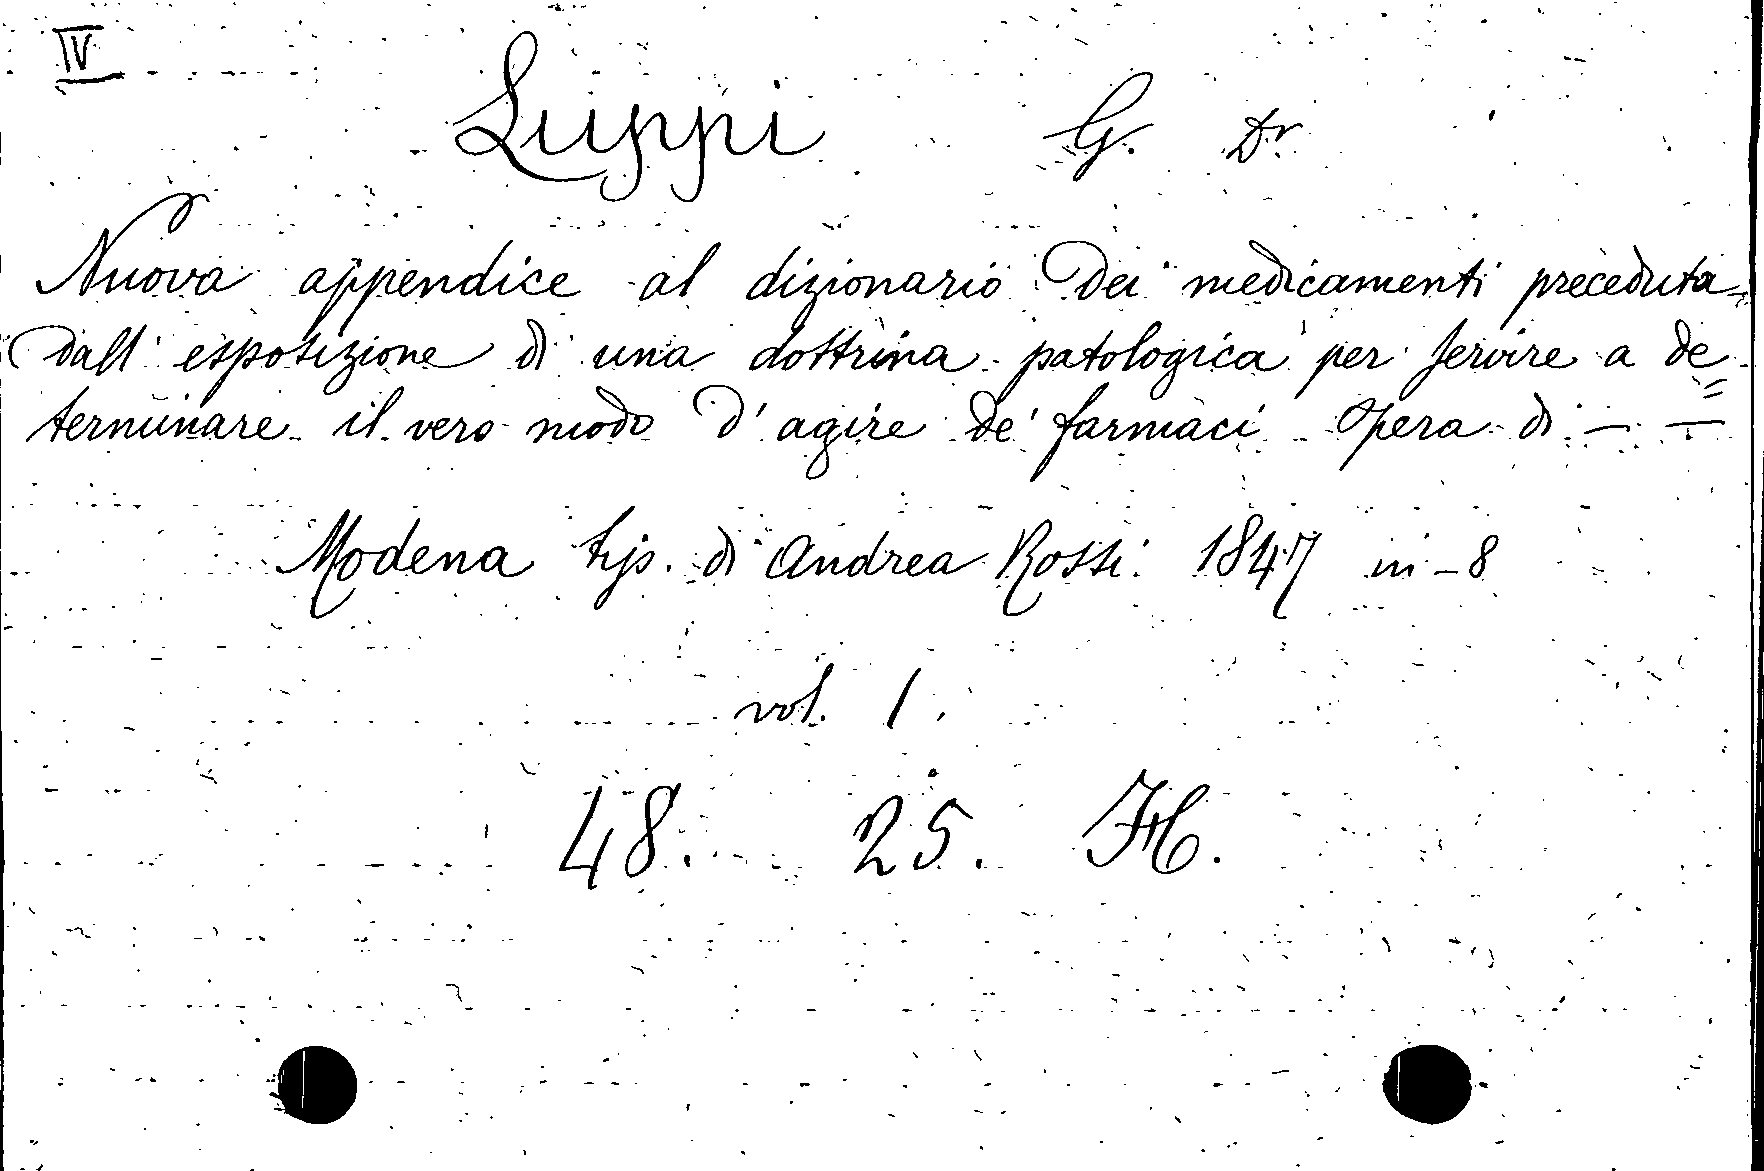 IV
Luppi G. Dr
Nuova appendice al dizionario dei medicamenti preceduta
dall' esposizione di una dottrina patologica per servire a de=
terminare il vero modo d' agire de' farmaci Opera di — —
Modena tip. di Andrea Rossi 1847 in-8
vol. 1.
48. 25. H.